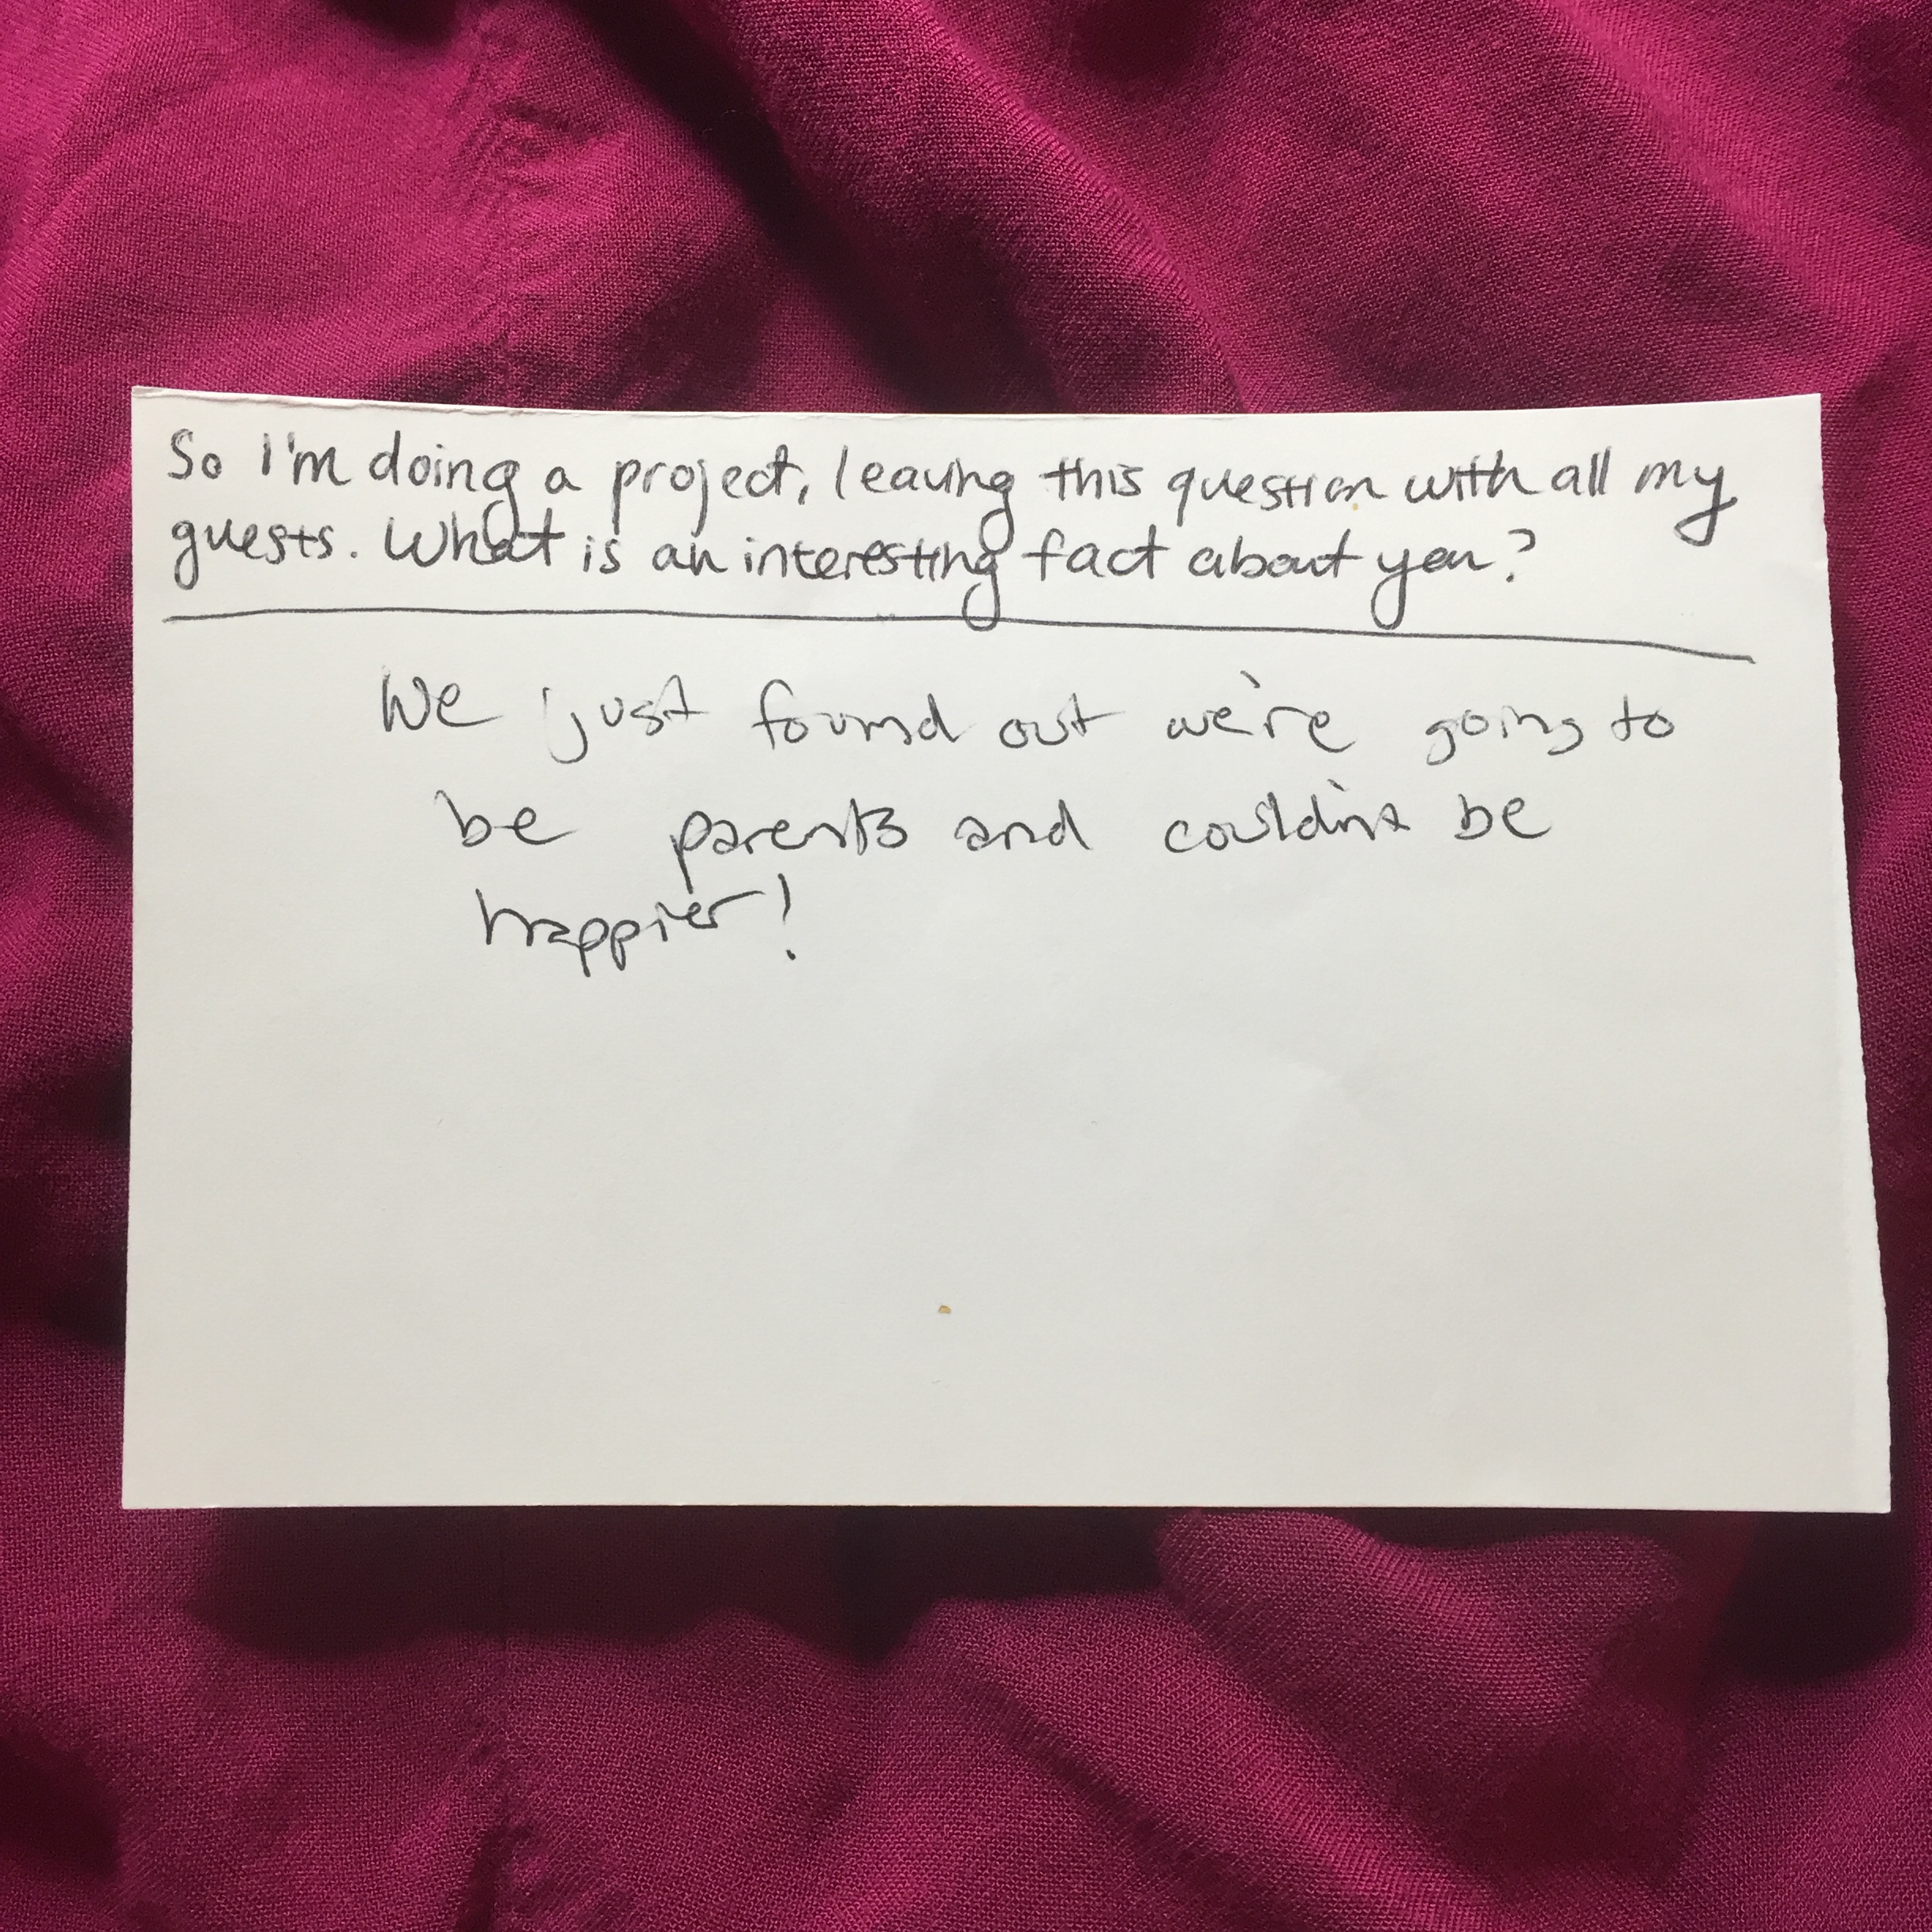 So I'm doing a project, leaving this question with all my
guests. What is an interesting fact about you?
We just found out we're going to
be parents and couldn't be
happier!